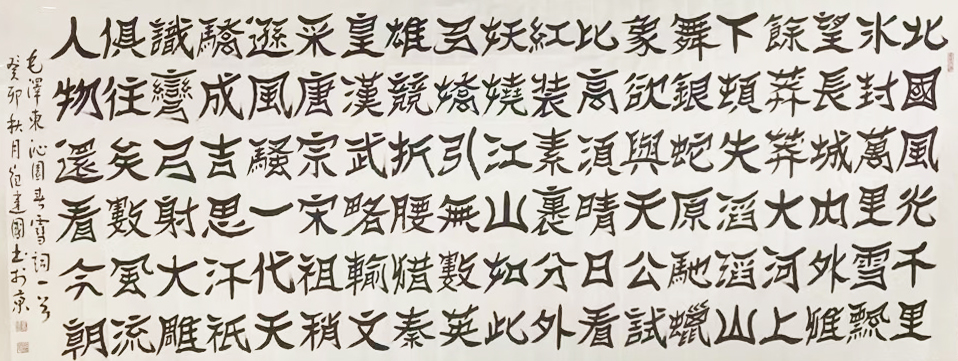 北國風光千里
冰封萬里雪飄
望長城內外惟
餘莽莽大河上
下頓失滔滔山
舞銀蛇原馳蠟
象欲與天公試
比高須晴日看
紅裝素裹分外
妖嬈江山如此
多嬌引無數英
雄競折腰惜秦
皇漢武略輸文
采唐宗宋祖稍
遜風騷一代天
驕成吉思汗祇
識彎弓射大雕
俱往矣數風流
人物還看今朝
毛澤東沁園春雪詞一首
癸卯秋月建國書於京